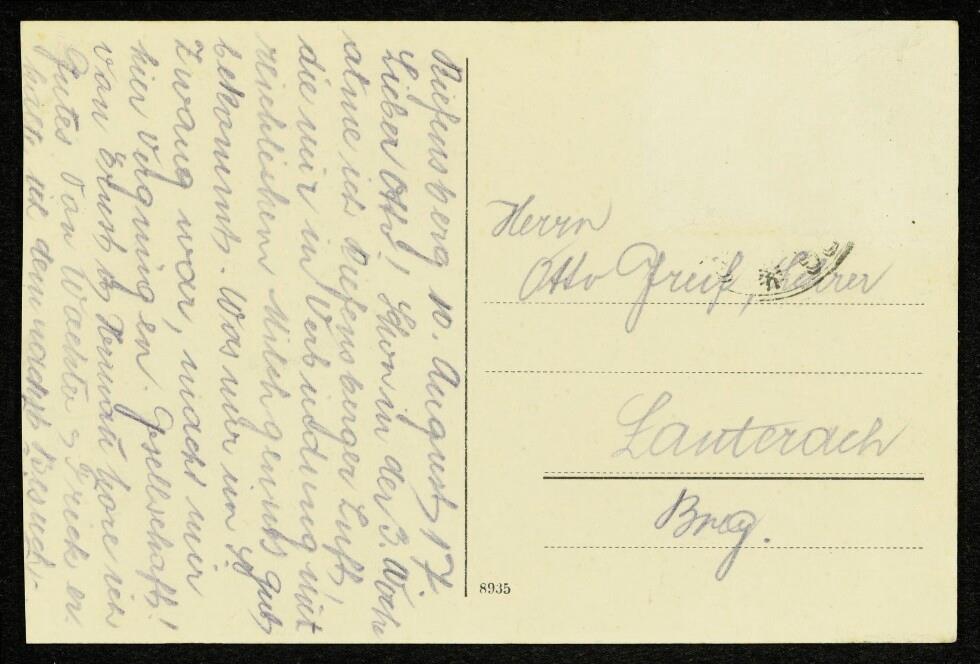 Riefensberg 10. August 17.
Lieber Otto! Schon in der 3. Woche
atme ich Riefensberger Luft,
die mir in Verbindung mit
reichlichem Milchgenuss gut
bekommt. Was mir im
Zwang war, macht mir
hier Vergnügen. Gesellschaft!
von Ernst & Hermann höre ich
Gutes. Von Waechter & Frick er-
halte ich demnächst Besuch.
Herrn
Otto
Lauterach
Breg.
8935